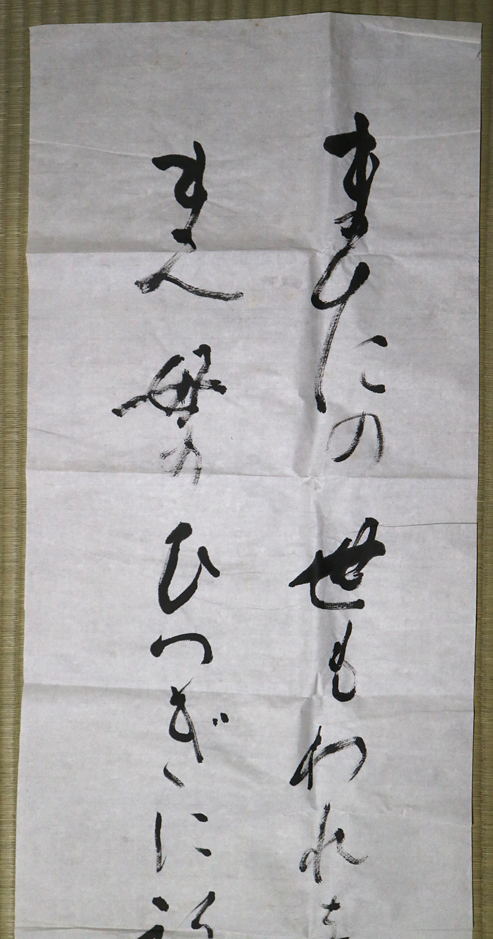 またの世もわれを
まへ母のひつぎに祈